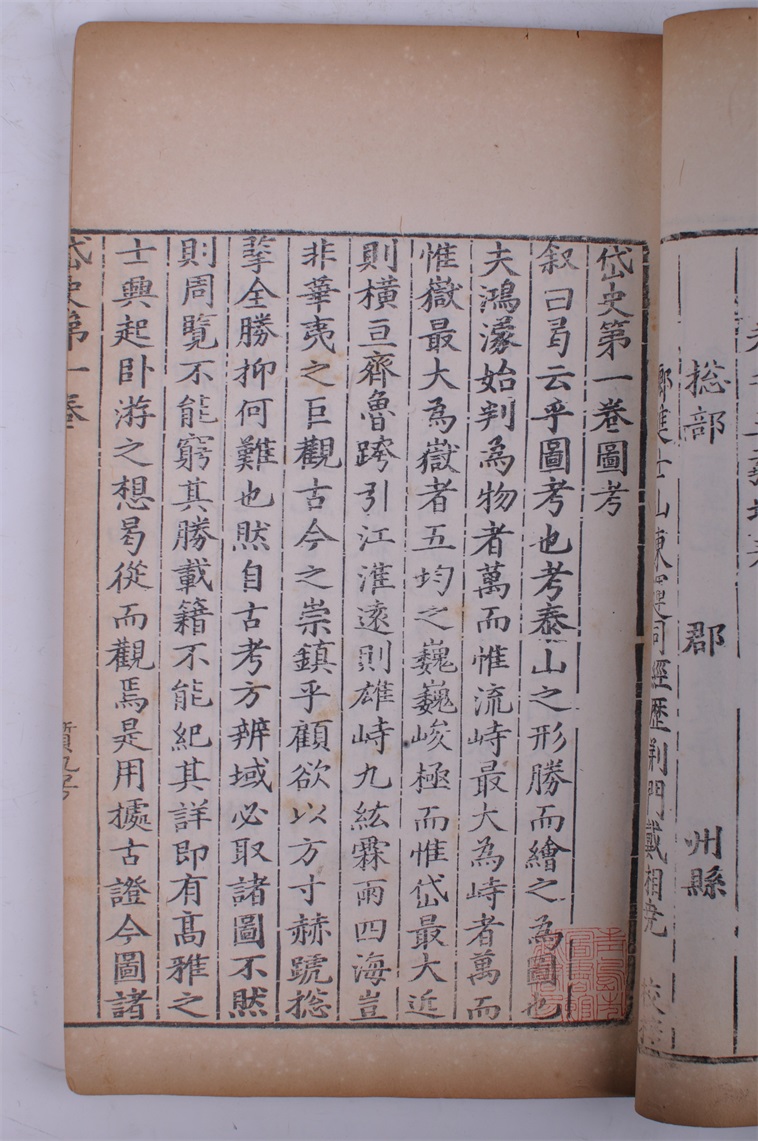 総部 郡 州縣
岱史第一卷圖考
叙曰曷云乎圖考也考泰山之形勝而繪之為圖也
夫鴻濛始判為物者萬而惟流峙最大為峙者萬而
惟嶽最大為嶽者五均之巍巍峻極而惟岱最大近
則橫亘齊魯跨引江淮遠則雄峙九紘霖雨四海豈
非華夷之巨觀古今之崇鎮乎顧欲以方寸赫蹏捴
挈全勝抑何難也然自古考方辨域必取諸圖不然
則周覽不能窮其勝載籍不能紀其詳即有高雅之
士興起卧游之想曷從而觀焉是用據古證今圖諸
岱史第一卷